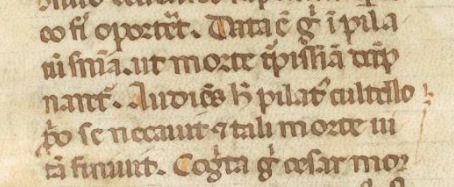 eo fi oportet̄. Data ē gͦ ī pila
tū snīa. ut morte t̄pissīa dāp
naret̄. Audiēs h̄ pilatꝰ cultello
ꝓo se necauit ⁊ tali morte ui
tā finiuit. Cogͥta gͦ cesar mor